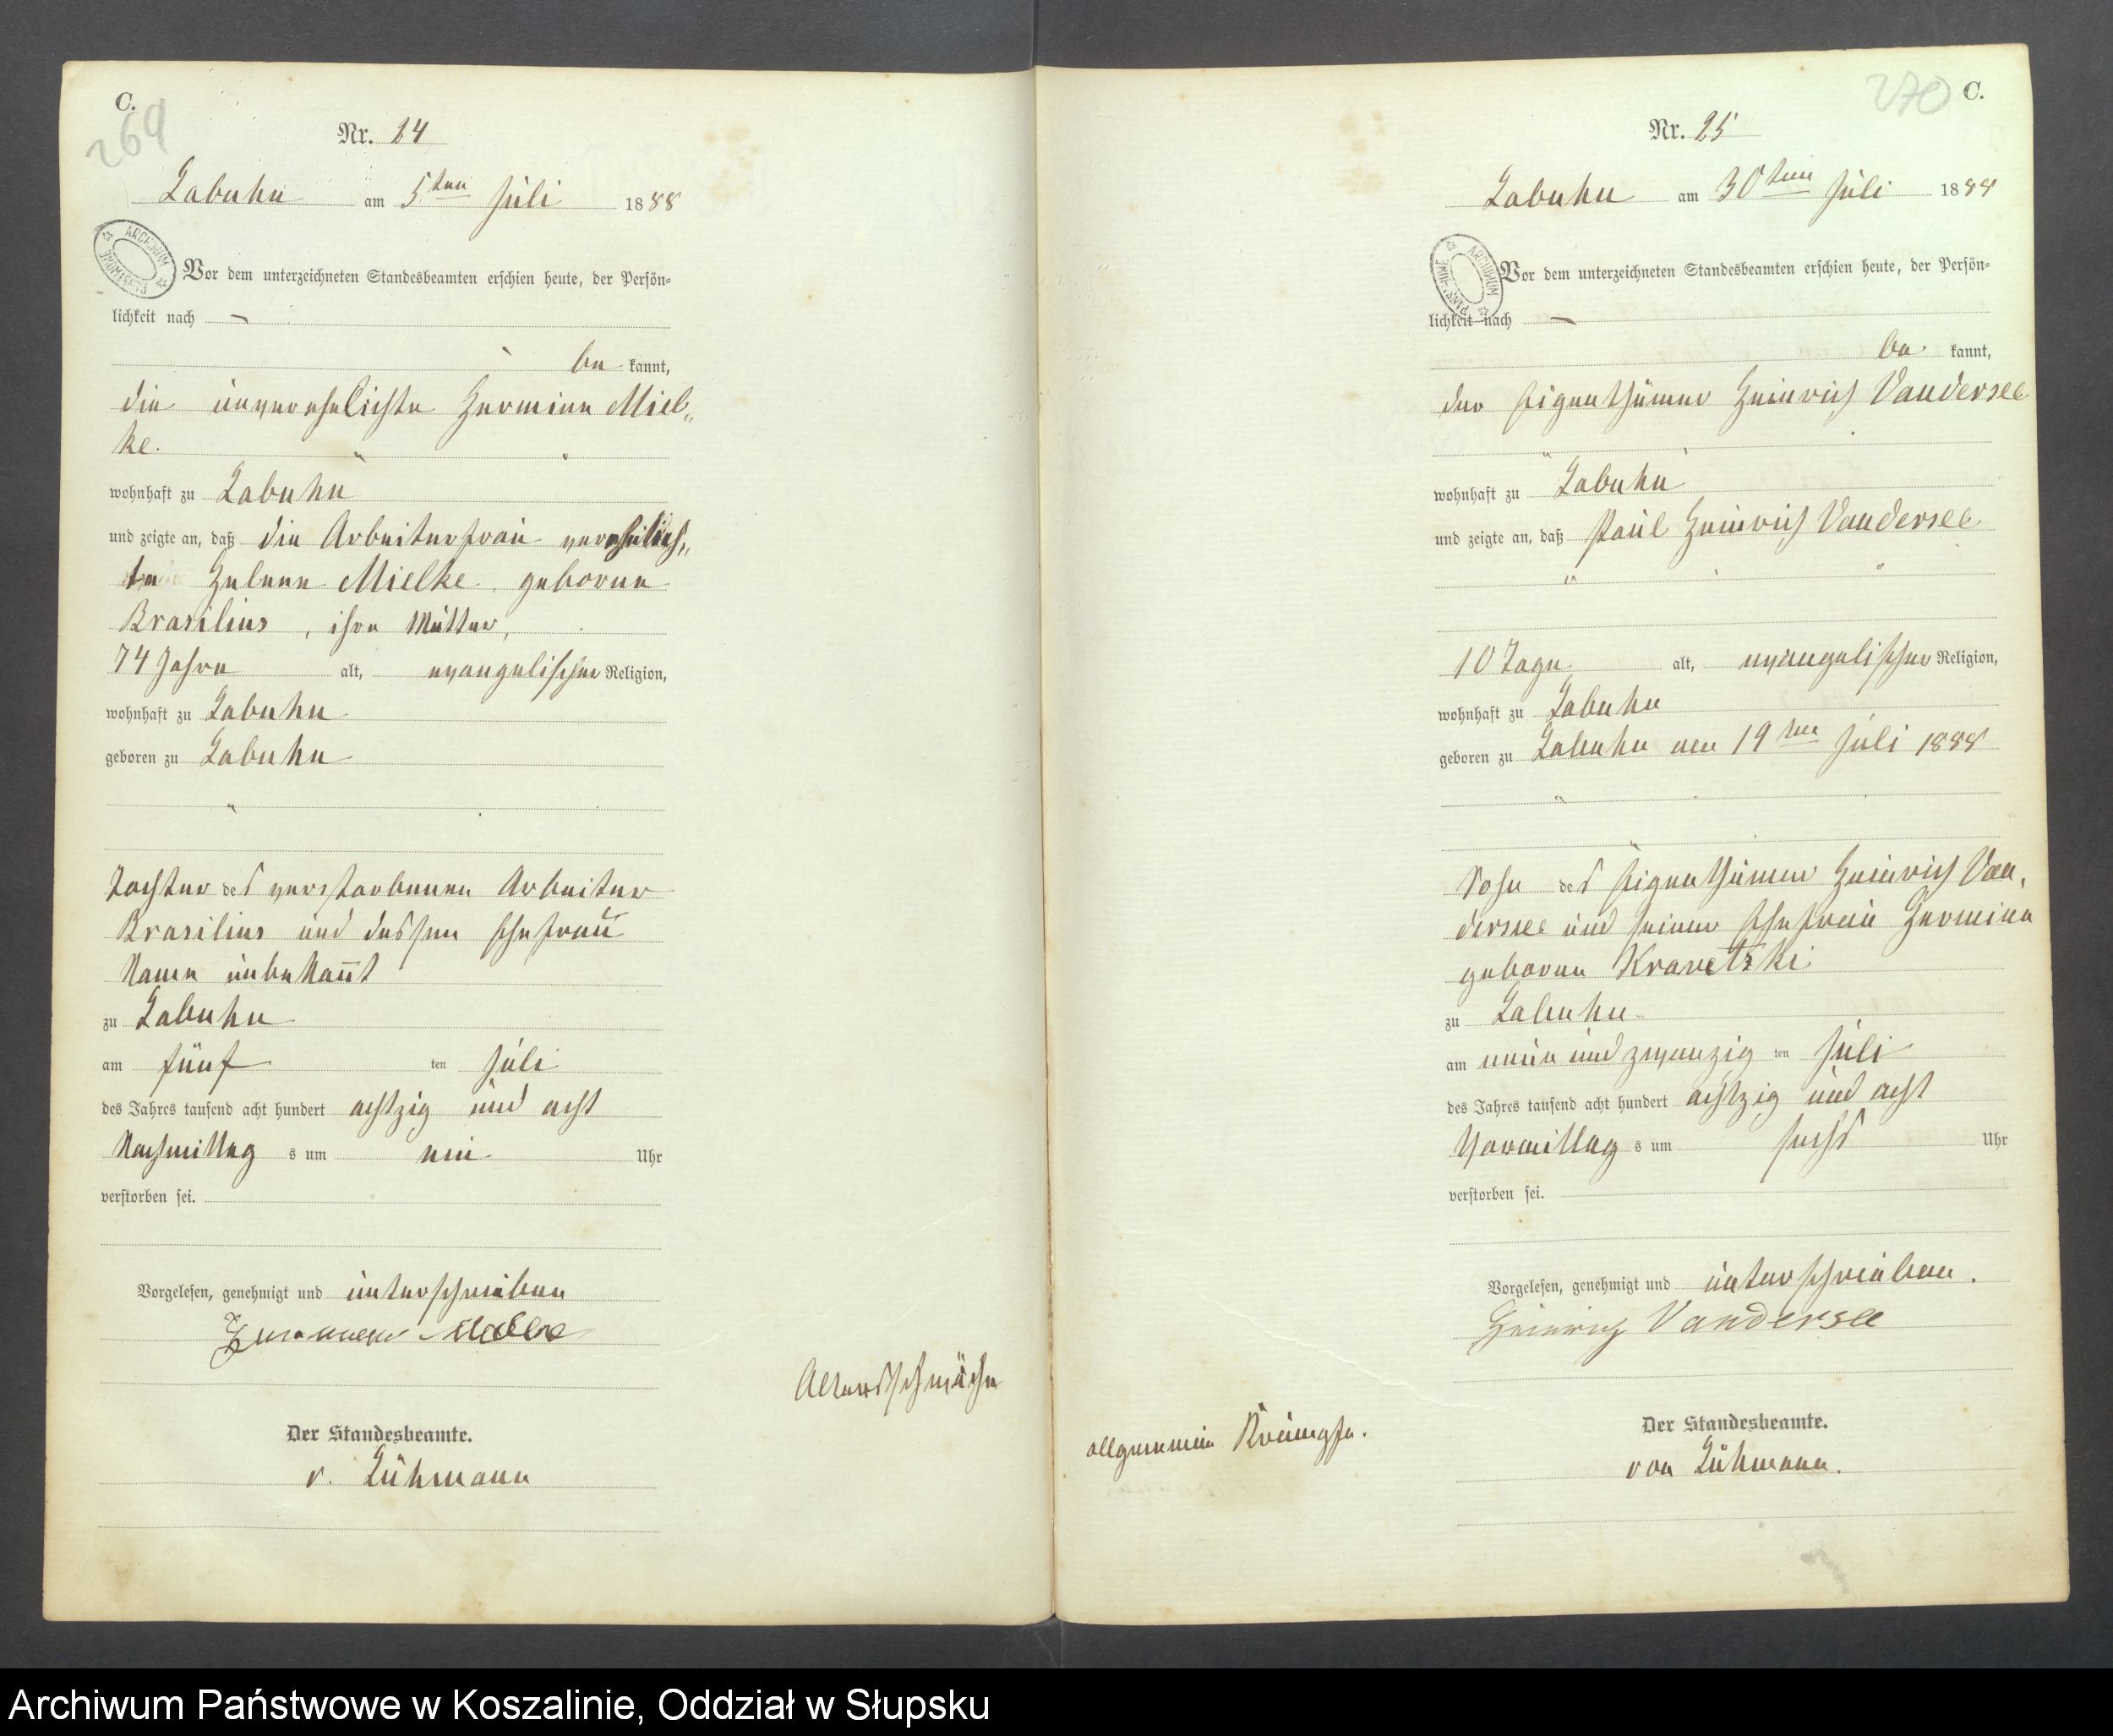 C.
269
Nr. 24
Labuhn am 5ten Juli 1888
ARCHIWUM PAŃSTWOWE
Vor dem unterzeichneten Standesbeamten erschien heute, der Persön-
lichkeit nach —
be kannt,
die unverehelichte Hermine Miel„
ke.
wohnhaft zu Labuhn
und zeigte an, daß die Arbeiterfrau verehelich„
te Helene Mielke, geborene
Brasilius, ihre Mutter,
74 Jahre alt, evangelischer Religion,
wohnhaft zu Labuhn
geboren zu Labuhn
Tochter des verstorbenen Arbeiter
Brasilius und dessen Ehefrau
Name unbekannt
zu Labuhn
am fünf ten Juli
des Jahres tausend acht hundert achtzig und acht
Nachmittag s um ein Uhr
verstorben sei.
Vorgelesen, genehmigt und unterschrieben
Der Standesbeamte.
v. Lühmann
Altersschwäche
270
C.
Nr. 25
Labuhn am 30ten Juli 1888
ARCHIWUM PAŃSTWOWE
Vor dem unterzeichneten Standesbeamten erschien heute, der Persön-
lichkeit nach —
be kannt,
der Eigenthümer Heinrich Vandersee
wohnhaft zu Labuhn
und zeigte an, daß Paul Heinrich Vandersee
10 Tage alt, evangelischer Religion,
wohnhaft zu Labuhn
geboren zu Labuhn am 19ten Juli 1888
Sohn des Eigenthümer Heinrich Van„
dersee und seiner Ehefrau Hermine
geborene Kravetzki
zu Labuhn
am neun und zwanzig ten Juli
des Jahres tausend acht hundert achtzig und acht
Vormittag s um sechs Uhr
verstorben sei.
Vorgelesen, genehmigt und unterschrieben.
Heinrich Vandersee
Der Standesbeamte.
von Lühmann.
allgemeine Krämpfe.
Archiwum Państwowe w Koszalinie, Oddział w Słupsku